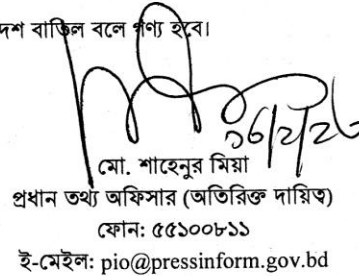 দেশ বাতিল বলে গণ্য হবে।
১৬/২/২৬
মো. শাহেনুর মিয়া
প্রধান তথ্য অফিসার (অতিরিক্ত দায়িত্ব)
ফোন: ৫৫১০০৮১১
ই-মেইল: pio@pressinform.gov.bd